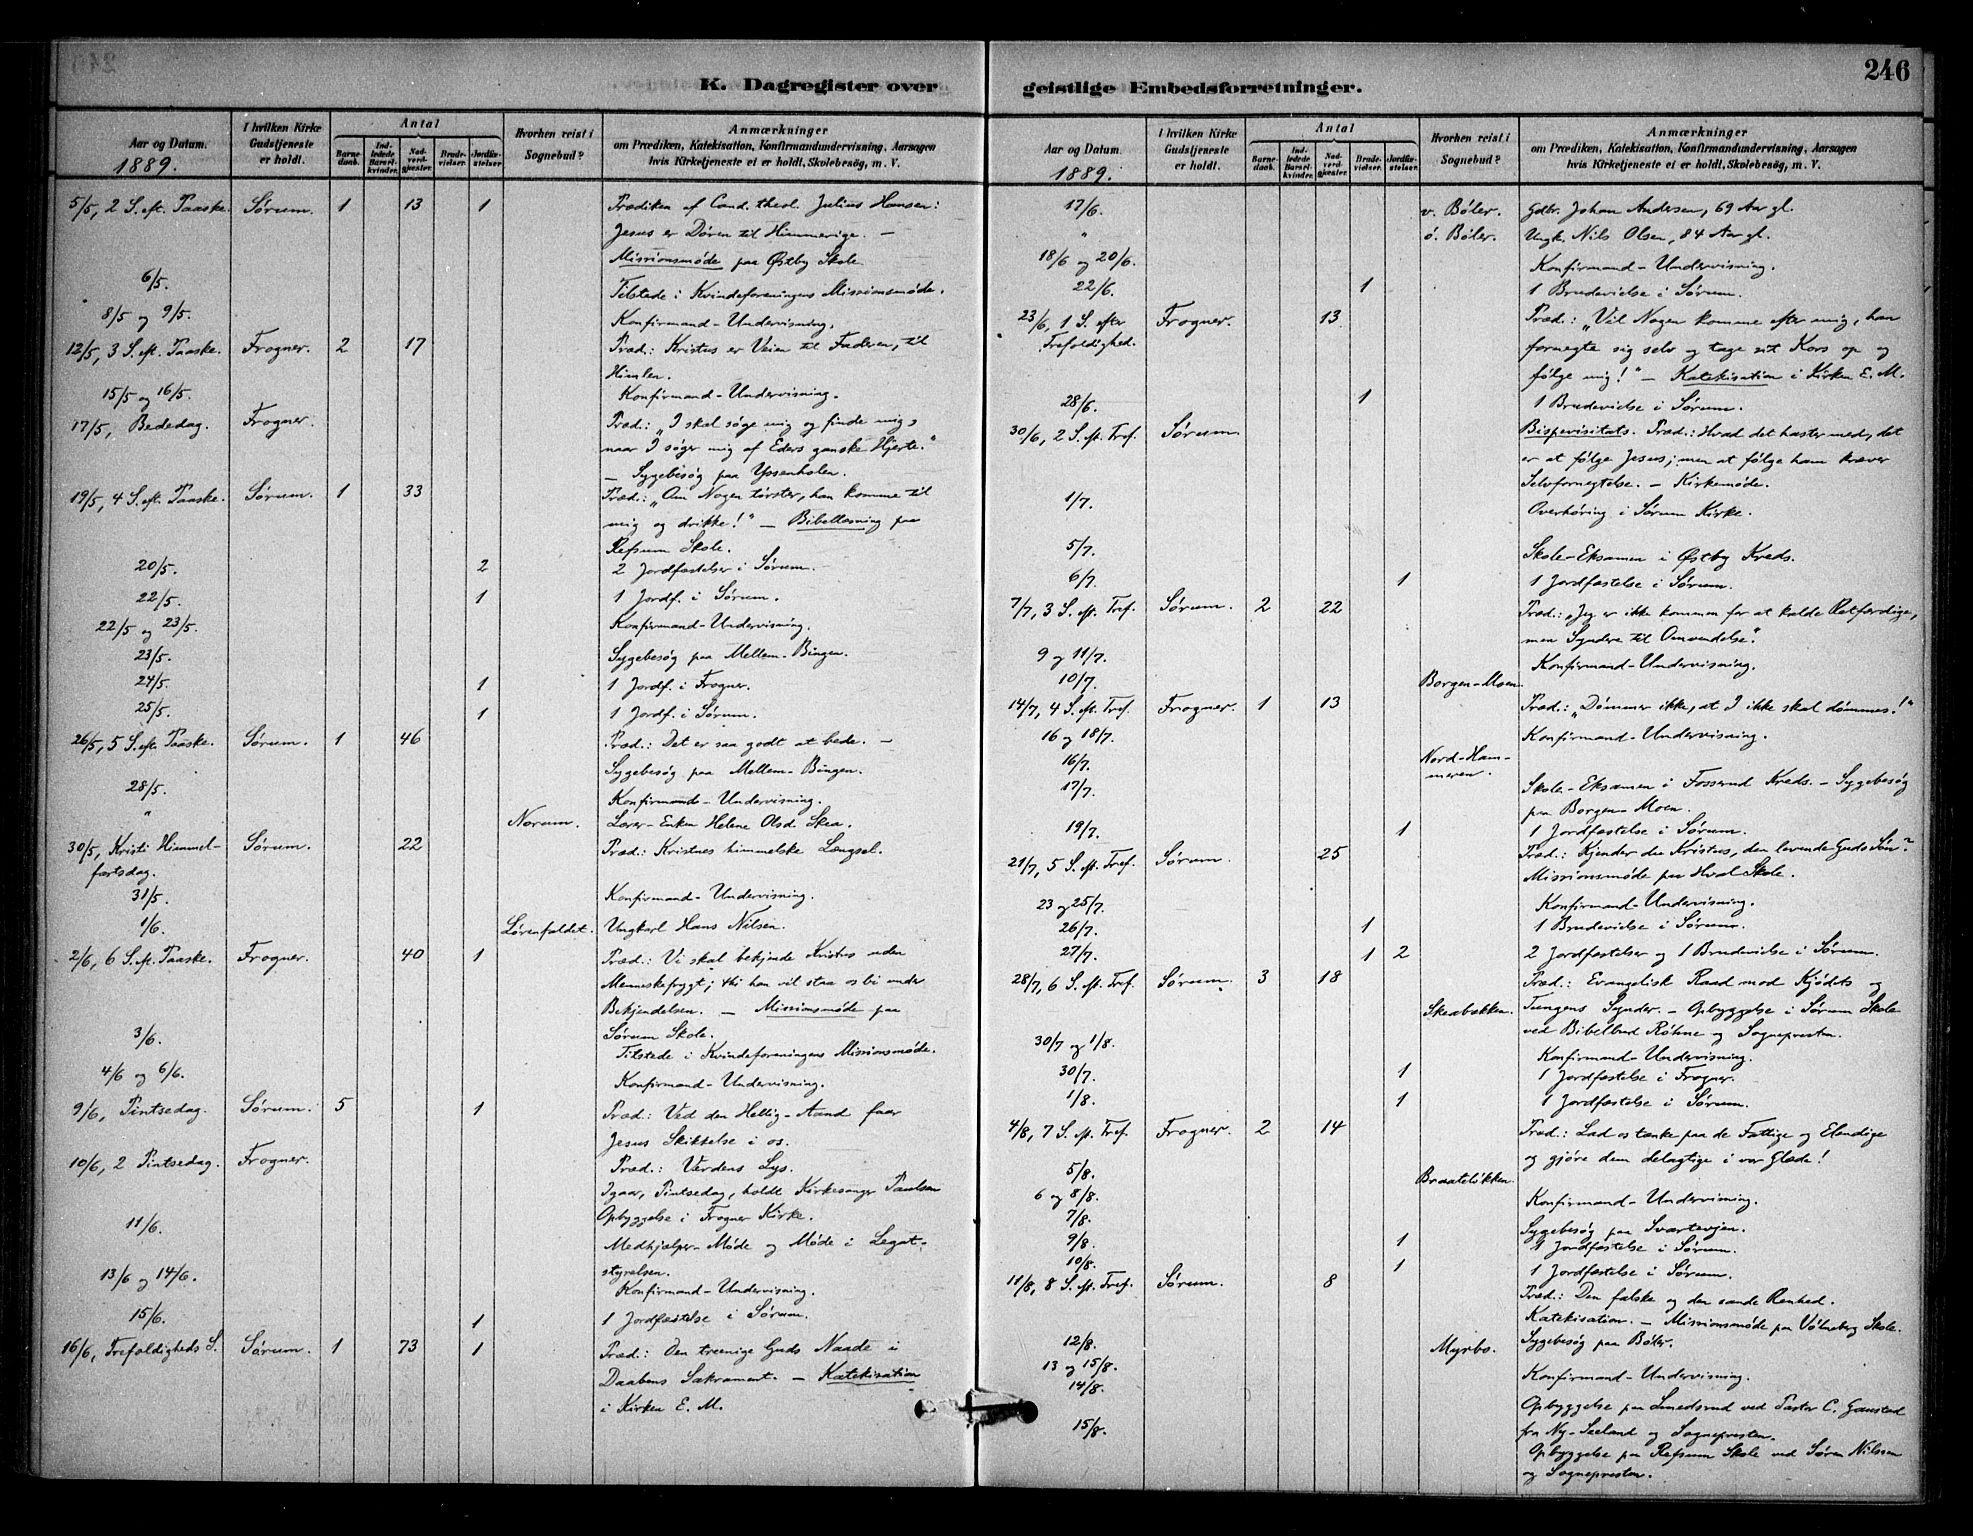 246
K. Dagregister over
geistlige Embedsforretninger.
Aar og Datum.
1889.
I hvilken Kirke Gudstjeneste er holdt.
Antal
Barne-daab.
Ind-ledede Barsel-kvinder.
Nad-verd-gjester.
Brude-vielser.
Jordfæ-stelser.
Hvorhen reist i Sognebud?
Anmærkninger
om Prædiken, Katekisation, Konfirmandundervisning, Aarsagen
hvis Kirketjeneste ei er holdt, Skolebesög, m. V.
5/5, 2 S. eft. Paaske. Sørum. 1 13 1 Prædiken af Cand. theol. Julius Hansen:
Jesus er Døren til Himmerige. —
Missionsmøde paa Østby Skole
6/5. Tilstede i Kvindeforeningens Missionsmøde.
8/5 og 9/5. Konfirmand-Undervisning.
12/5, 3 S. eft. Paaske. Frogner. 2 17 Præd.: Kristus er Veien til Faderen, til
Himlen.
15/5 og 16/5. Konfirmand-Undervisning.
17/5, Bededag. Frogner. Præd.: "I skal søge mig og finde mig,
naar I søger mig af Eders ganske Hjerte."
— Sygebesøg paa Ypsenholen.
19/5, 4 S. eft. Paaske. Sørum. 1 33 Præd.: "Om Nogen tørster, han komme til
mig og drikke!" — Bibellæsning paa
Refsum Skole.
20/5. 2 2 Jordfæstelser i Sørum.
22/5. 1 1 Jordf. i Sørum.
22/5 og 23/5. Konfirmand-Undervisning.
23/5. Sygebesøg paa Mellem-Bingen.
24/5. 1 1 Jordf. i Frogner.
25/5. 1 1 Jordf. i Sørum.
26/5, 5 S. eft. Paaske. Sørum. 1 46 Præd.: Det er saa godt at bede. —
Sygebesøg paa Mellem-Bingen.
28/5. Konfirmand-Undervisning.
" Norum. Lærer-Enken Helene Olsd. Skea.
30/5, Kristi Himmel- Sørum. 22 Præd.: Kristnes himmelske Længsel.
fartsdag.
31/5. Konfirmand-Undervisning.
1/6. Lørenfaldet. Ungkarl Hans Nilsen.
2/6, 6 S. eft. Paaske. Frogner. 40 1 Præd.: Vi skal bekjende Kristus uden
Menneskefrygt; thi han vil staa os bi under
Bekjendelsen. — Missionsmøde paa
Sørum Skole.
3/6. Tilstede i Kvindeforeningens Missionsmøde.
4/6 og 6/6. Konfirmand-Undervisning.
9/6, Pintsedag. Sørum. 5 1 Præd.: Ved den Hellig-Aand faar
Jesus Skikkelse i os.
10/6, 2 Pintsedag. Frogner. Præd.: Verdens Lys.
Igaar, Pintsedag, holdt Kirkesanger Paulsen
Opbyggelse i Frogner Kirke.
11/6. Medhjælper-Møde og Møde i Legat-
styrelsen.
13/6 og 14/6. Konfirmand-Undervisning.
15/6. 1 1 Jordfæstelse i Sørum.
16/6, Trefoldigheds S. Sørum. 1 73 1 Præd.: Den treenige Guds Naade i
Daabens Sakrament. — Katekisation
i Kirken E. M.
Aar og Datum.
1889.
I hvilken Kirke Gudstjeneste er holdt.
Antal
Barne-daab.
Ind-ledede Barsel-kvinder.
Nad-verd-gjester.
Brude-vielser.
Jordfæ-stelser.
Hvorhen reist i Sognebud?
Anmærkninger
om Prædiken, Katekisation, Konfirmandundervisning, Aarsagen
hvis Kirketjeneste ei er holdt, Skolebesög, m. V.
17/6. v. Bøler. Gdbr. Johan Andersen, 69 Aar gl.
" ö. Bøler. Ungk. Nils Olsen, 84 Aar gl.
18/6 og 20/6. Konfirmand-Undervisning.
22/6. 1 1 Brudevielse i Sørum.
23/6, 1 S. efter Frogner. 13 Præd.: "Vil Nogen komme efter mig, han
Trefoldighed. fornegte sig selv og tage sit Kors op og
følge mig!" — Katekisation i Kirken E. M.
28/6. 1 1 Brudevielse i Sørum.
30/6, 2 S. eft. Tref. Sørum. Bispevisitats. Præd.: Hvad det haster med, det
er at følge Jesus; men at følge ham kræver
Selvfornegtelse. — Kirkemøde.
1/7. Overhøring i Sørum Kirke.
5/7. Skole-Eksamen i Østby Kreds.
6/7. 1 1 Jordfæstelse i Sørum.
7/7, 3 S. eft. Tref. Sørum. 2 22 Præd.: "Jeg er ikke kommen for at kalde Retfærdige,
men Syndere til Omvendelse."
9 og 11/7. Konfirmand-Undervisning.
10/7. Borgen-Moen.
14/7, 4 S. eft. Tref. Frogner. 1 13 Præd.: "Dømmer ikke, at I ikke skal dømmes!"
16 og 18/7. Konfirmand-Undervisning.
16/7. Nord-Ham-
meren.
17/7. Skole-Eksamen i Fosserud Kreds. — Sygebesøg
paa Borgen-Moen.
19/7. 1 1 Jordfæstelse i Sørum.
21/7, 5 S. eft. Tref. Sørum. 25 Præd.: Kjender du Kristus, den levende Guds Søn?
Missionsmøde paa Hval Skole.
23 og 25/7. Konfirmand-Undervisning.
26/7. 1 1 Brudevielse i Sørum.
27/7. 1 2 2 Jordfæstelser og 1 Brudevielse i Sørum.
28/7, 6 S. eft. Tref. Sørum. 3 18 Præd.: Evangelisk Raad mod Kjødets og
Skeabækken. Tungens Synder. — Opbyggelse i Sørum Skole
ved Bibelbud Røhne og Sognepresten.
30/7 og 1/8. Konfirmand-Undervisning.
30/7. 1 1 Jordfæstelse i Frogner.
1/8. 1 1 Jordfæstelse i Sørum.
4/8, 7 S. eft. Tref. Frogner. 2 14 Præd.: Lad os tænke paa de Fattige og Elendige
og gjøre dem delagtige i vor Glæde!
5/8. Braateløkken.
6 og 8/8. Konfirmand-Undervisning.
7/8. Sygebesøg paa Svartevjen.
9/8. 1 1 Jordfæstelse i Sørum.
10/8. 1 1 Jordfæstelse i Sørum.
11/8, 8 S. eft. Tref. Sørum. 8 Præd.: Den falske og den sande Renhed.
Katekisation. — Missionsmøde paa Vølneberg Skole.
12/8. Myrbo. Sygebesøg paa Bøler.
13 og 15/8. Konfirmand-Undervisning.
14/8. Opbyggelse paa Smedsrud ved Pastor C. Gaustad
fra Ny-Seeland og Sognepresten.
15/8. Opbyggelse paa Refsum Skole ved Søren Nilssen
og Sognepresten.